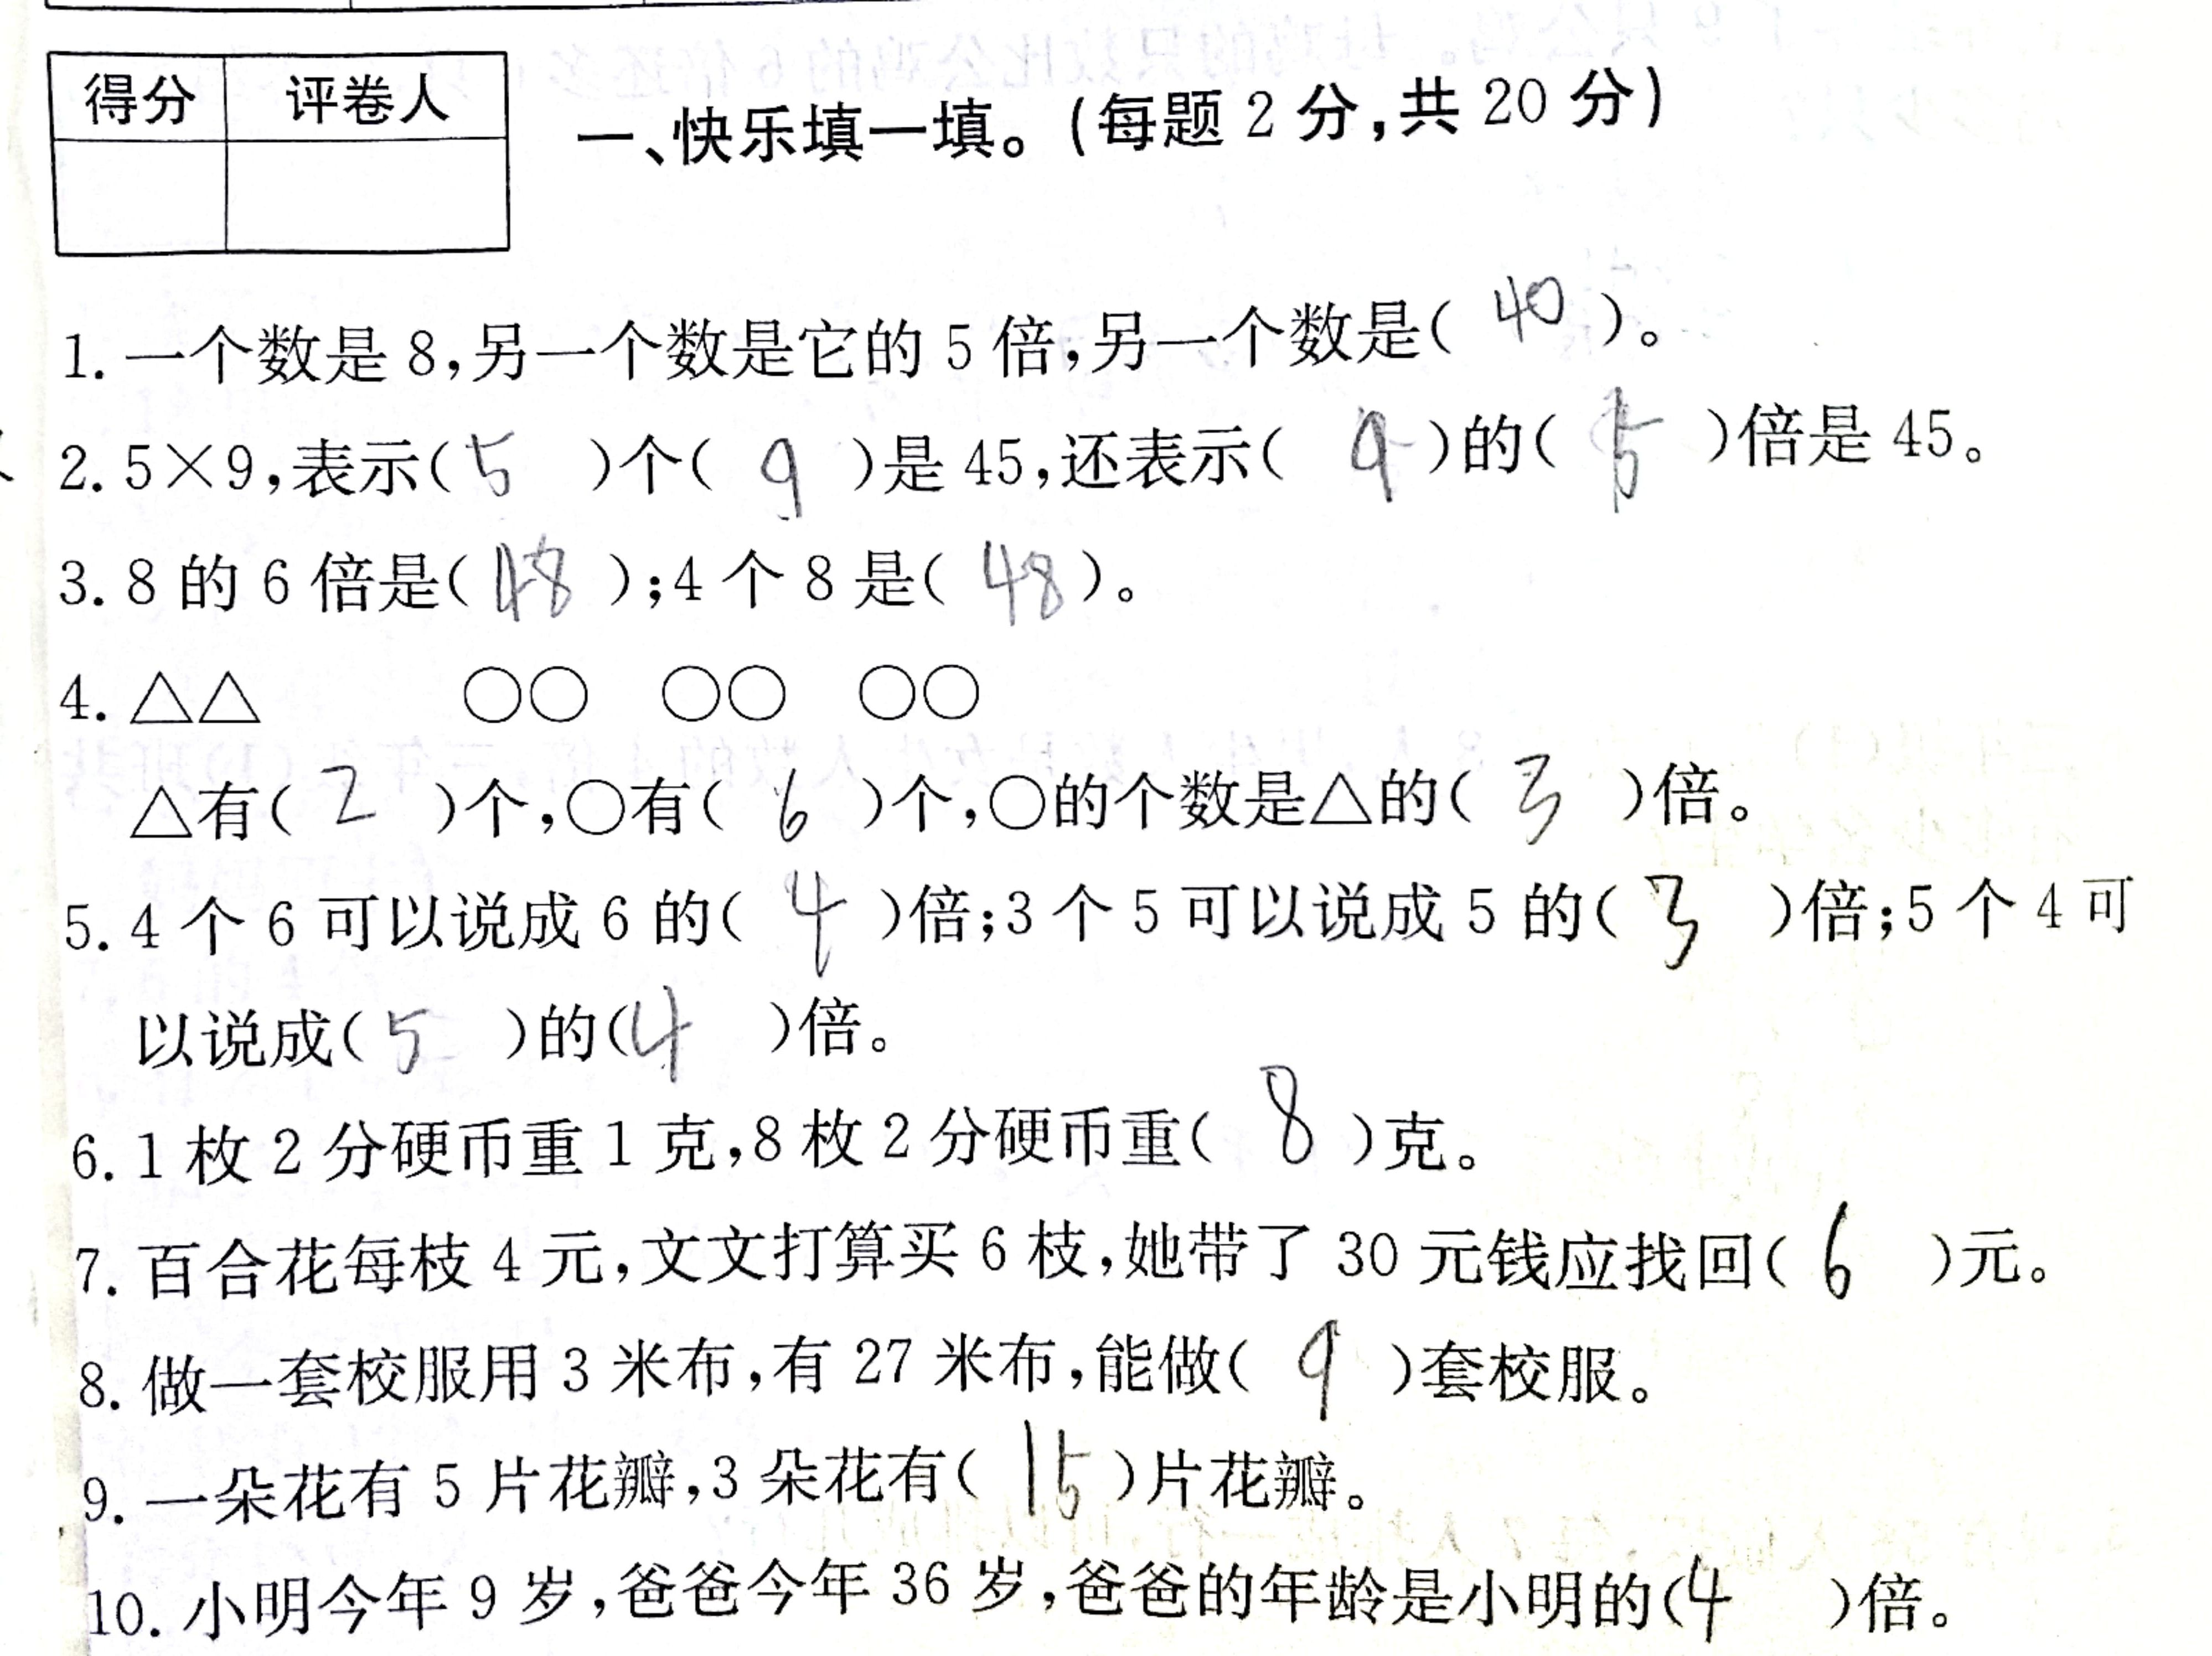 得分 评卷人
一、快乐填一填。(每题 2 分,共 20 分)
1. 一个数是 8,另一个数是它的 5 倍,另一个数是( 40 )。
2. 5×9,表示( 5 )个( 9 )是 45,还表示( 9 )的( 5 )倍是 45。
3. 8 的 6 倍是( 48 );4 个 8 是( 48 )。
4. △△ ○○ ○○ ○○
△有( 2 )个,○有( 6 )个,○的个数是△的( 3 )倍。
5. 4 个 6 可以说成 6 的( 4 )倍;3 个 5 可以说成 5 的( 3 )倍;5 个 4 可
以说成( 5 )的( 4 )倍。
6. 1 枚 2 分硬币重 1 克,8 枚 2 分硬币重( 8 )克。
7. 百合花每枝 4 元,文文打算买 6 枝,她带了 30 元钱应找回( 6 )元。
8. 做一套校服用 3 米布,有 27 米布,能做( 9 )套校服。
9. 一朵花有 5 片花瓣,3 朵花有( 15 )片花瓣。
10. 小明今年 9 岁,爸爸今年 36 岁,爸爸的年龄是小明的( 4 )倍。